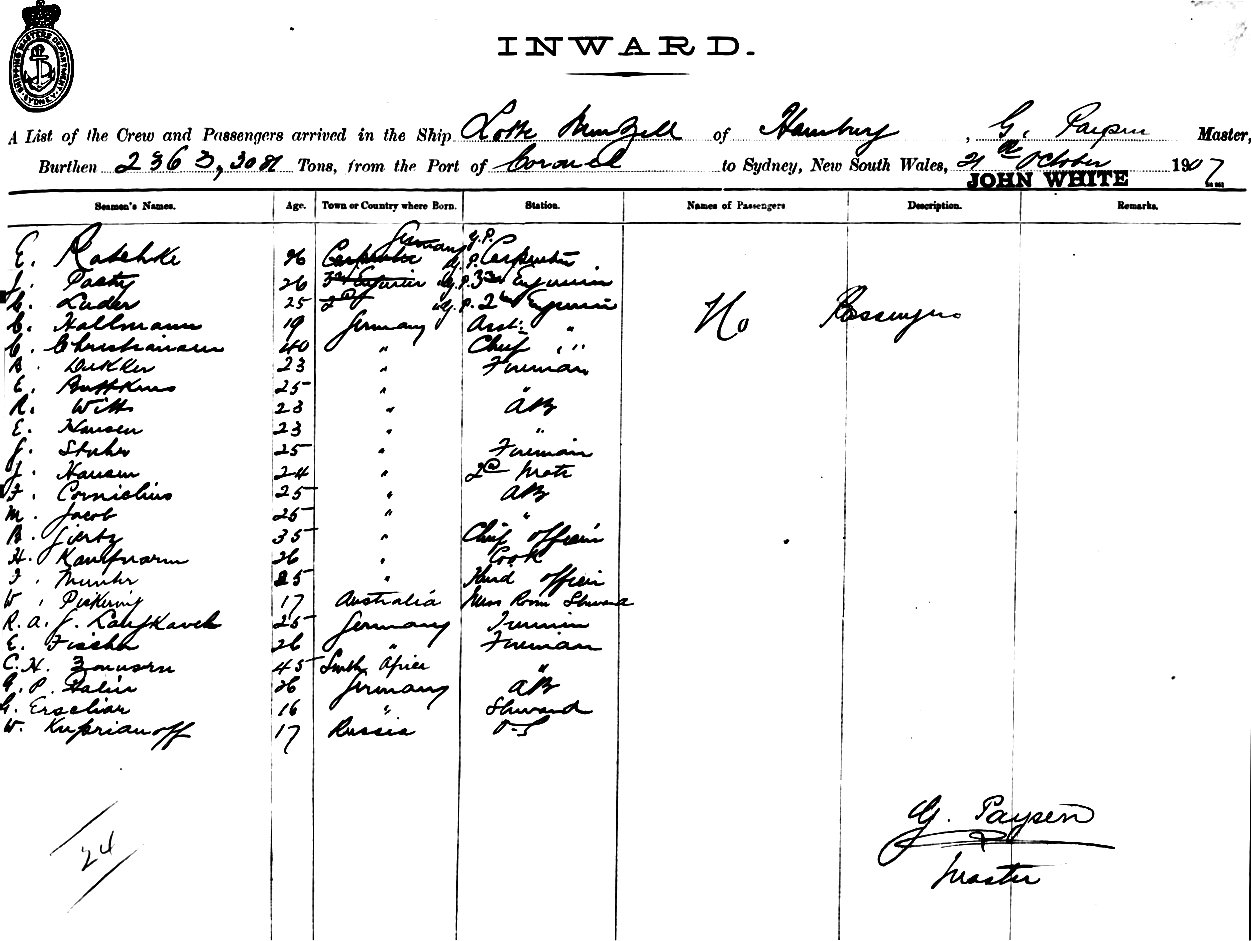 SHIPPING MASTERS DEPARTMENT SYDNEY
INWARD.
A List of the Crew and Passengers arrived in the Ship Lotte Menzell of Hamburg, G. Paysen Master,
Burthen 2363, Tons, from the Port of Coronel to Sydney, New South Wales, 21st October 1907
JOHN WHITE
Seamen's Names. Age. Town or Country where Born. Station. Names of Passengers Description. Remarks.
E. Raschke 26 Carpenter Germany G.P. Carpenter
J. 26 3rd Engineer G.P. 3rd Engineer
C. Luder 25 2nd G.P. 2nd Engineer
C. Hallmann 19 Germany Asst: "
No Passengers
C. Christiansen 40 " Chief "
B. Dekker 23 " Fireman
E. 25 " "
R. Witt 23 " AB
E. Hansen 23 " "
J. 25 " Fireman
J. Hansen 24 " 2nd Mate
F. Cornelius 25 " AB
M. Jacob 25 " "
B. Giertz 35 " Chief Officer
H. Kaufmann 26 " Cook
F. 25 " Third Officer
W. Pickering 17 Australia Mess Room Steward
R. A. J. 25 Germany
E. Fischer 26 " Fireman
C. H. 45 South Africa "
G. P. 26 Germany AB
G. 16 " Steward
W. Kuprianoff 17 Russia O.S
24
G. Paysen
Master